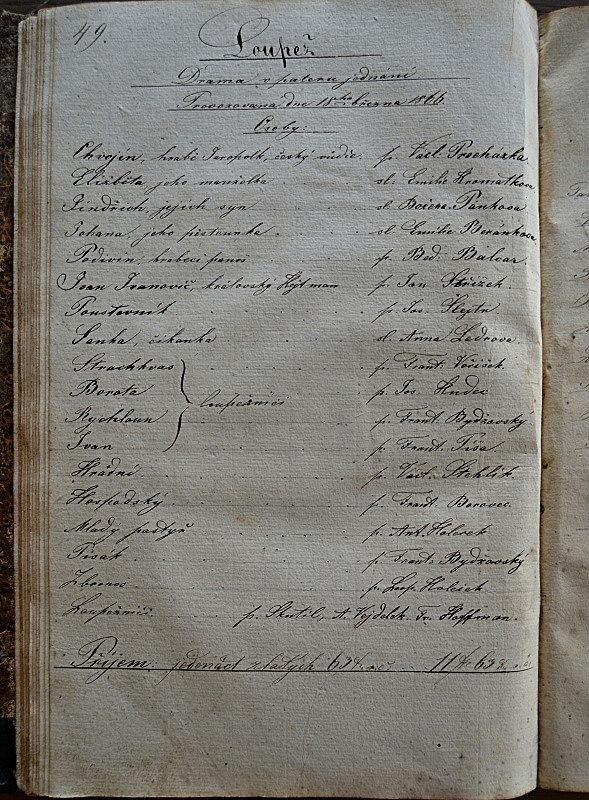 49.
Loupež
Drama v pateru jednání.
Provozovaná dne 18ho března 1866.
Osoby:
Chvojín, hrabě Jaropolk, český vůdce. p. Václ. Procházka
Eližběta jeho manželka sl. Emilie Kromátkova
Jindřich, jejich syn sl. Božena Pánkova
Johana, jeho pěstounka sl. Emilie Beránkova
Podivín, hraběcí panoš p. Bed. Balcar
Ivan Ivanovič, královský Hejtman p. Jan Střížek.
Poustevník p. Jos. Hejtn.
Sanha, cikánka sl. Anna Ledrova
Strachkvas p. Frant. Voříšek.
Borota loupežníci p. Jos. Hudec
Rychloun p. Frant. Bydžovský
Ivan p. Frant. Tíša.
Hrádní p. Václ. Stehlík
Hospodský p. Frant. Borovec
Mladý pastýř p. Ant. Holeček
Písák p. Frant. Bydžovský
Zbrojnoš p. Leop. Holeček
Loupežníci p. Skutil, A. Vejdělek. Fr. Hoffman.
Příjem: jedenáct zlatých 63 11 63